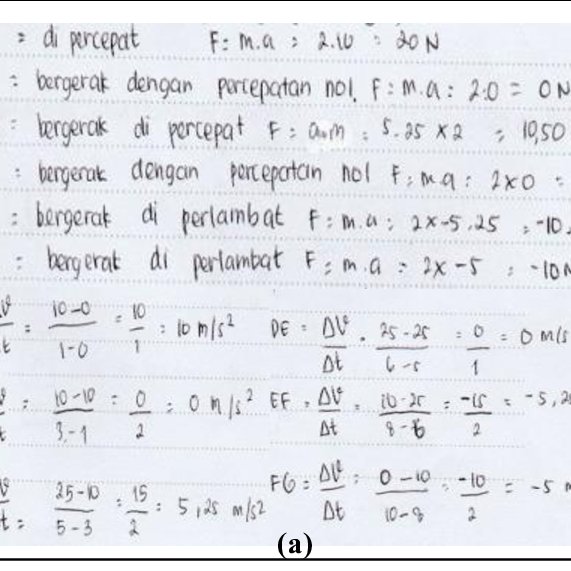 = di percepat F = m.a = 2.10 = 20 N
= bergerak dengan percepatan nol. F = m.a = 2.0 = 0 N
= bergerak di percepat F = a.m = 5.25 x 2 = 10,50
= bergerak dengan percepatan nol F = m.a = 2x0 =
= bergerak di perlambat F = m.a = 2x-5,25 = -10.
= bergerak di perlambat F = m.a = 2x -5 = -10N
v/t = 10-0/1-0 = 10/1 = 10 m/s² DE = ΔV/Δt = 25-25/6-5 = 0/1 = 0 m/s
= 10-10/3-1 = 0/2 = 0 m/s² EF = ΔV/Δt = 10-25/8-6 = -15/2 = -5,2
v/t = 25-10/5-3 = 15/2 = 5,25 m/s² FG = ΔV/Δt = 0-10/10-8 = -10/2 = -5 m
(a)